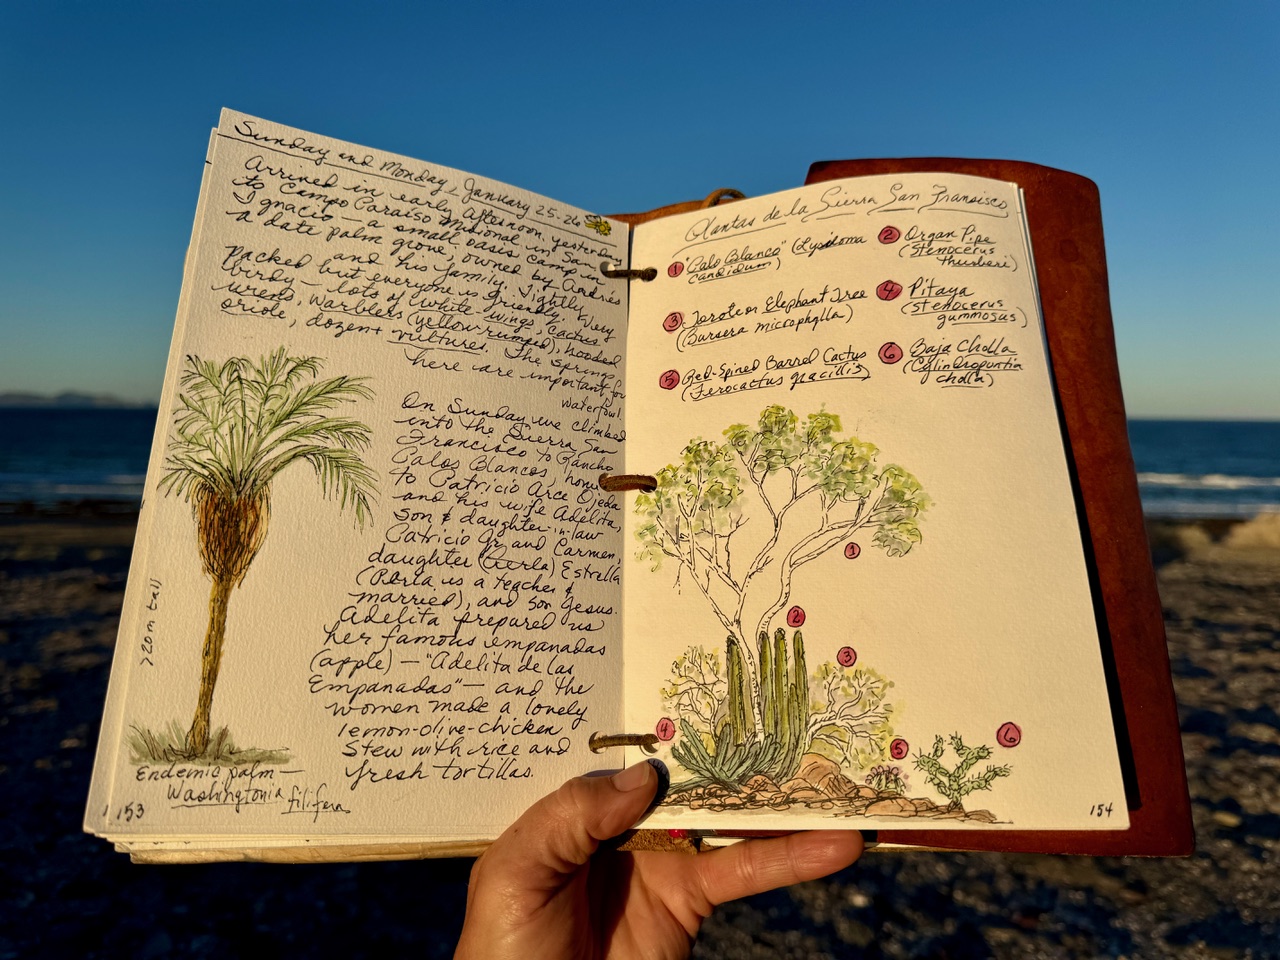 Sunday and Monday, January 25-26
Arrived in early afternoon yesterday
to Campo Paraiso Misional in San
Ignacio — a small oasis camp in
a date palm grove, owned by Andrés
and his family. Tightly
packed but everyone is friendly. Very
birdy — lots of white-wings, cactus
wrens, warblers (yellow rumped), hooded
oriole, dozen+ vultures. The springs
here are important for
waterfowl.
On Sunday we climbed
into the Sierra San
Francisco to Rancho
Palos Blancos, home
to Patricio Arce Ojeda
and his wife Adelita,
son & daughter-in-law
Patricio Jr. and Carmen,
daughter (Perla) Estrella
(Perla is a teacher &
married), and son Jesus.
Adelita prepared us
her famous empanadas
(apple) — "Adelita de las
Empanadas" — and the
women made a lovely
lemon-olive-chicken
stew with rice and
fresh tortillas.
>20m tall
Endemic palm —
Washingtonia filifera
153
Plantas de la Sierra San Fransisco
1 Palo Blanco" (Lysiloma
candidum)
2 Organ Pipe
(Stenocerus
thurberi)
3 Torote or Elephant Tree
(Bursera microphylla)
4 Pitaya
(Stenocerus
gummosus)
5 Red-Spined Barrel Cactus
(Ferocactus gracillis)
6 Baja Cholla
(Cylindropuntia
cholla)
1
2
3
4
5
6
154